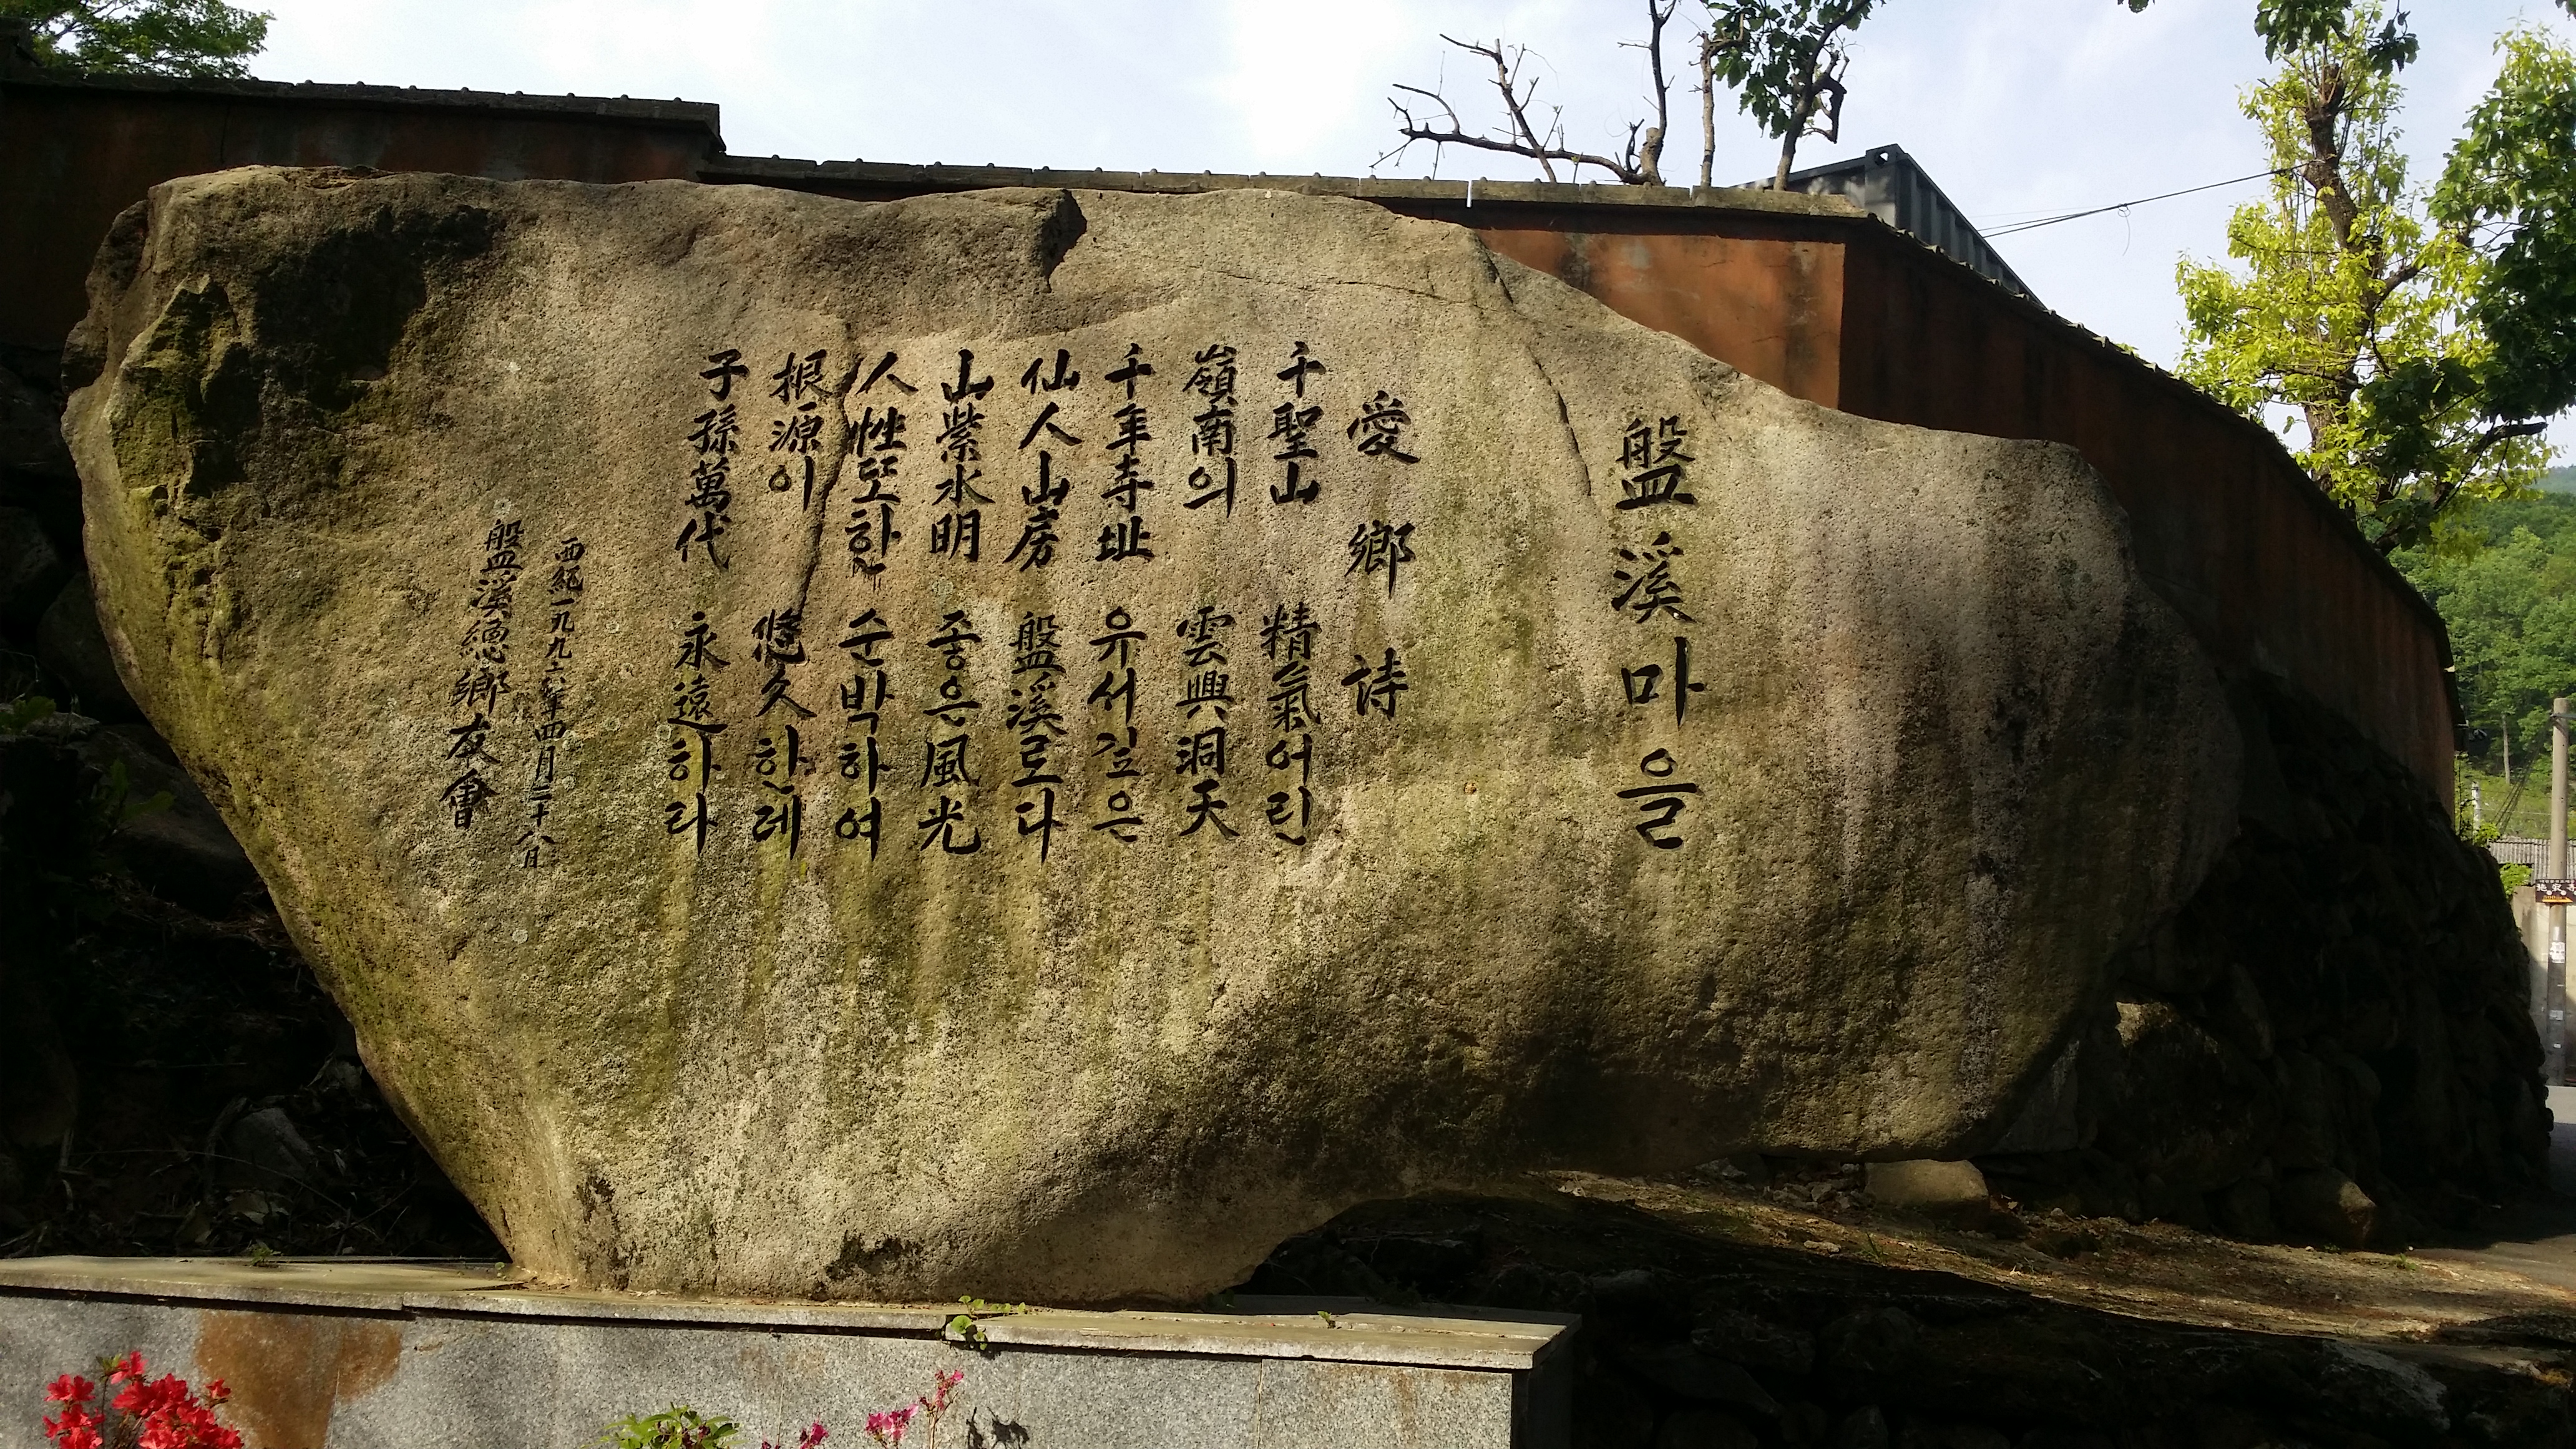 盤溪마을
愛鄕詩
千聖山 精氣어린
嶺南의 雲興洞天
千年寺址 유서깊은
仙人山房 盤溪로다
山紫水明 좋은風光
人性또한 순박하여
根源이 悠久한데
子孫萬代 永遠하라
西紀一九九六年四月二十八日
盤溪總鄕友會